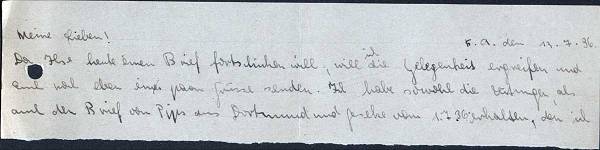 Meine Lieben! B.A. den 13.7.36.
Da Ilse heute einen Brief fortschicken will, will ich die Gelegenheit ergreifen und
auch mal eben ein paar Grüsse senden. Ich habe sowohl die als
auch den Brief von Pips aus Dortmund und Geseke vom 1.7.36 erhalten, den ich